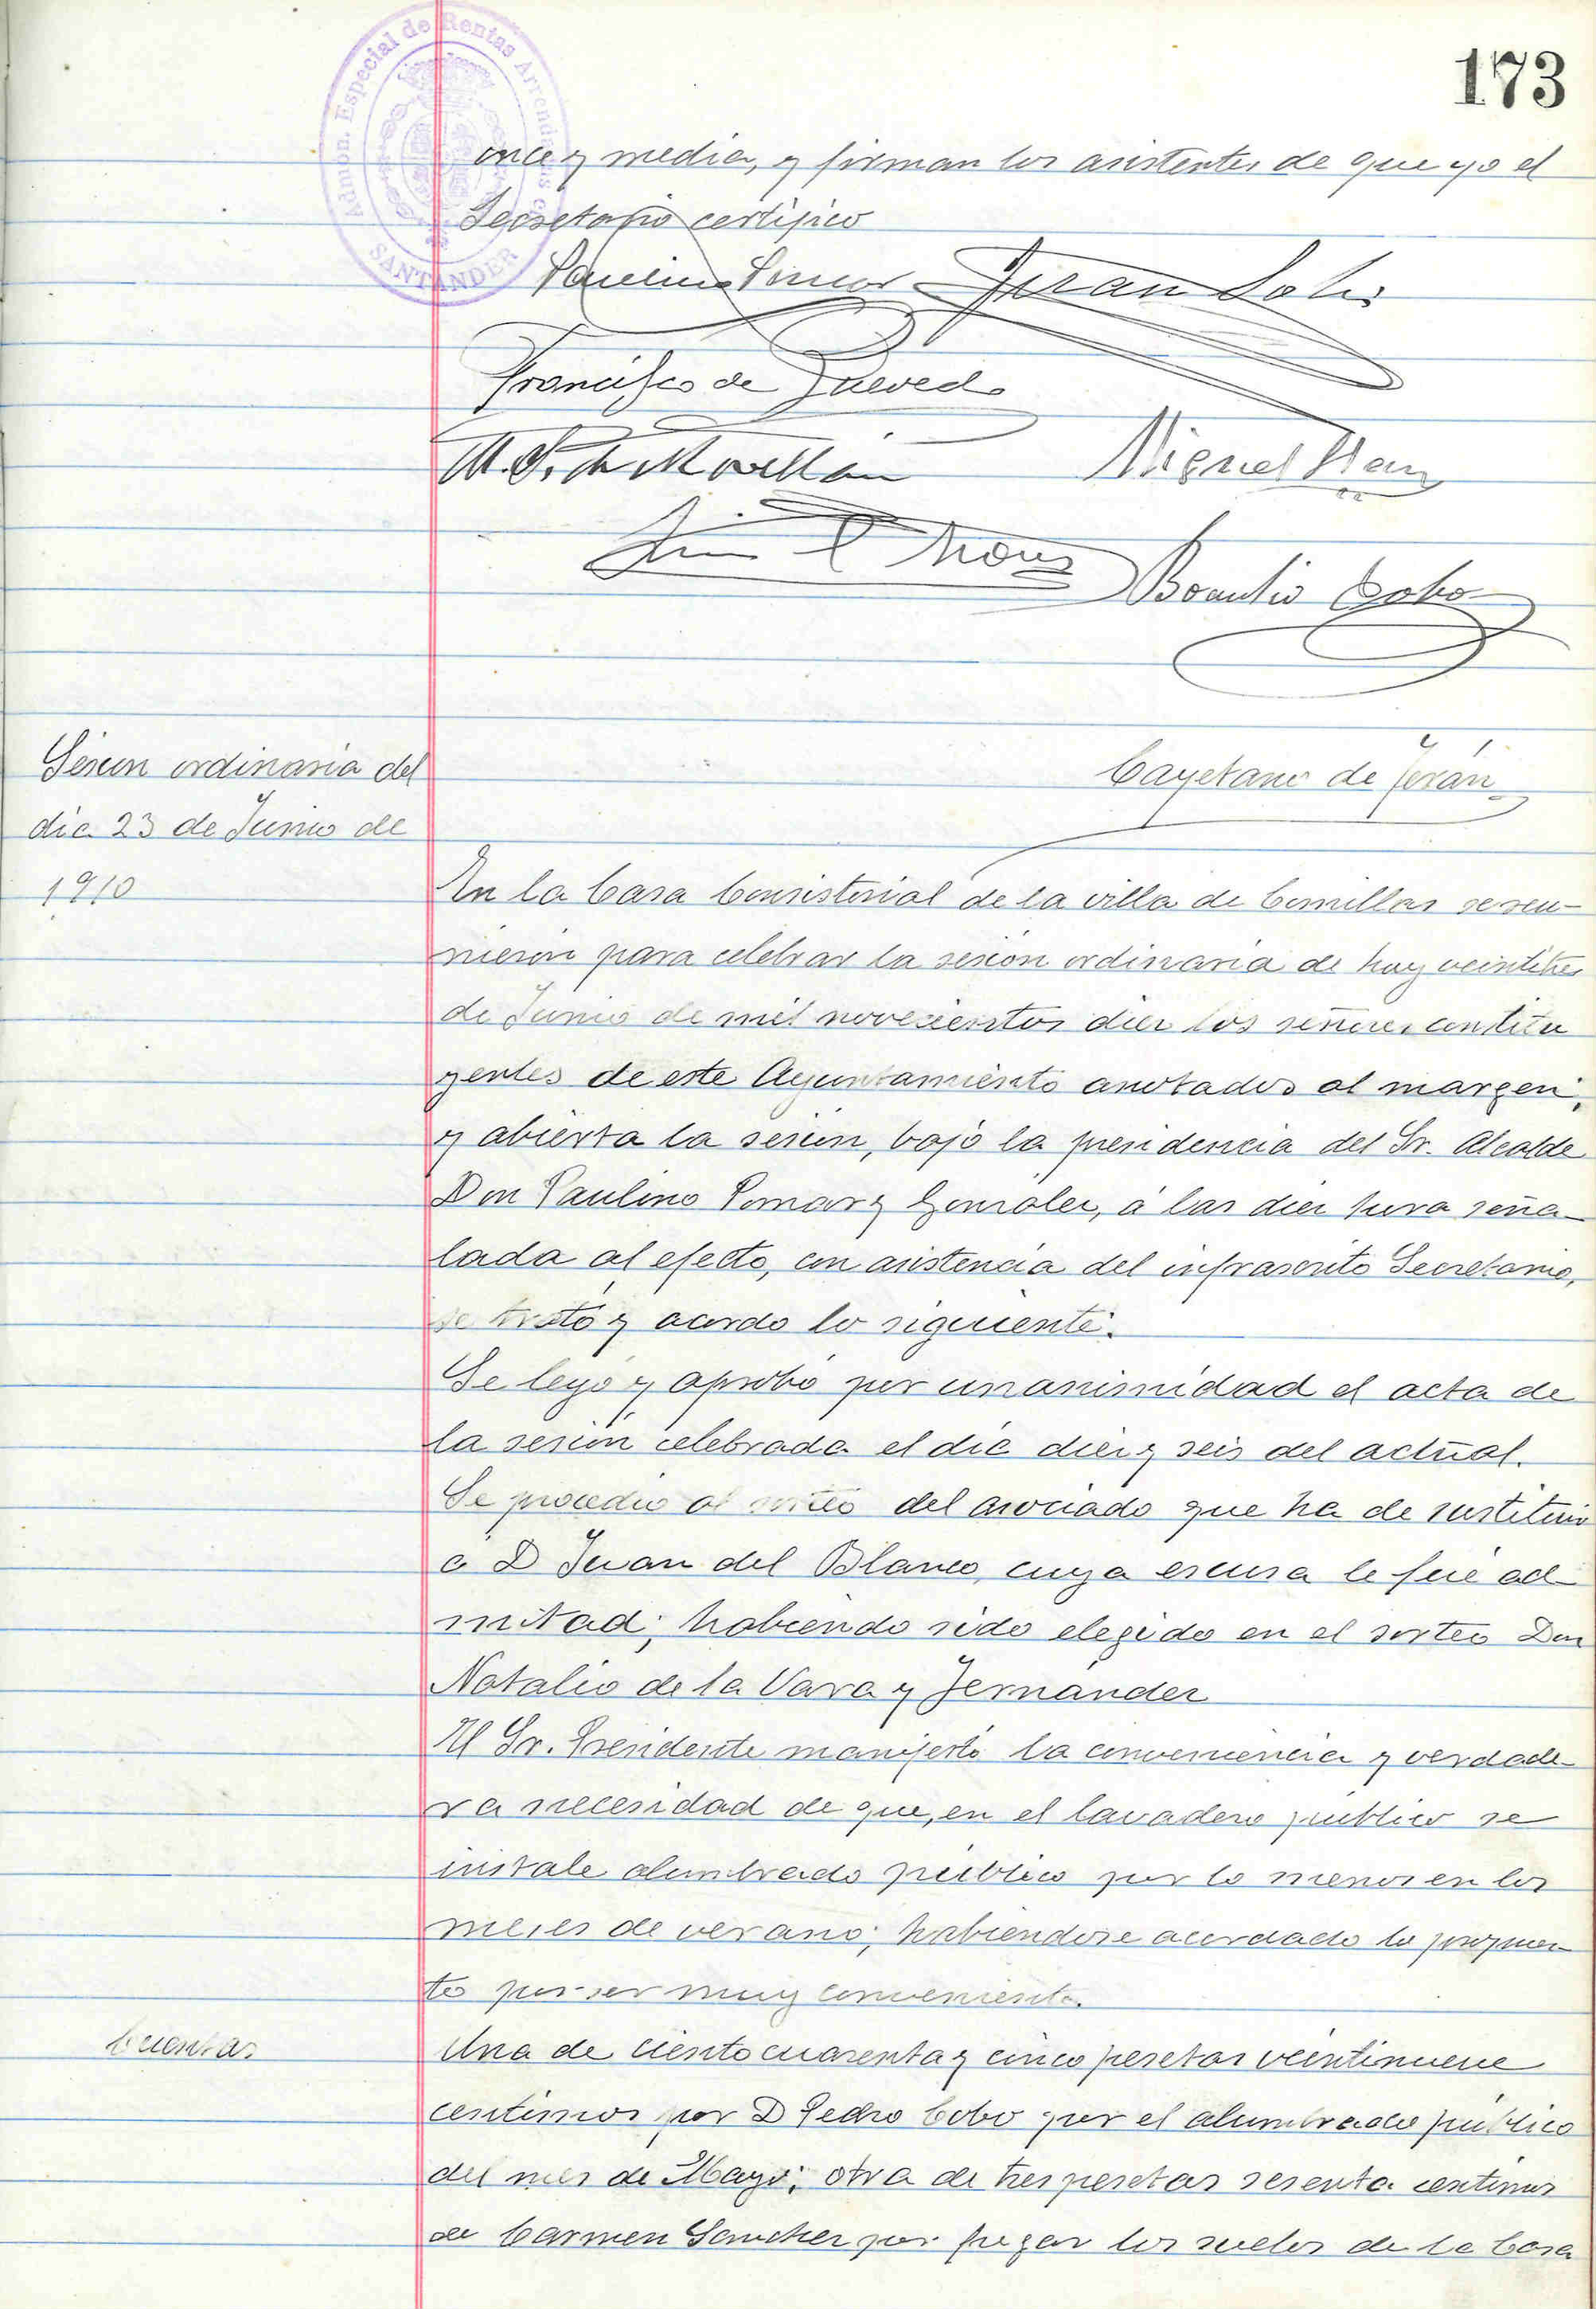 173
Admón. Especial de Rentas Arrendadas
SANTANDER
once y media, y firman los asistentes de que yo el
Secretario certifico
Paulino Pomar Juan Solis
Francisco de Quevedo
M. S. de Movellán Miguel
Braulio Cobo
Cayetano de Terán
Sesion ordinaria del
dia 23 de Junio de
1910
En la Casa Consistorial de la villa de Comillas se reu-
nieron para celebrar la sesión ordinaria de hoy veintitres
de Junio de mil novecientos diez los señores constitu
yentes de este Ayuntamiento anotados al margen;
y abierta la sesion, bajo la presidencia del Sr. Alcalde
Don Paulino Pomar y Gonzalez, á las diez hora seña-
lada al efecto, con asistencia del infrascrito Secretario,
se trató y acordo lo siguiente.
Se leyó y aprobó por unanimidad el acta de
la sesion celebrada el dia diez y seis del actual.
Se procedio al sorteo del asociado que ha de sustituir
a D Juan del Blanco, cuya escusa le fue ad
mitad; habiendo sido elegido en el sorteo Don
Natalio de la Vara y Fernández
El Sr. Presidente manifestó la conveniencia y verdade-
ra necesidad de que, en el lavadero público se
instale alumbrado público por lo menos en los
meses de verano; habiendose acordado lo propues
to por ser muy conveniente.
Cuentas
Una de ciento cuarenta y cinco pesetas veintinueve
centimos por D Pedro Cobo por el alumbrado público
del mes de Mayo; otra de tres pesetas sesenta centimos
de Carmen Sanchez por fregar los suelos de la Casa